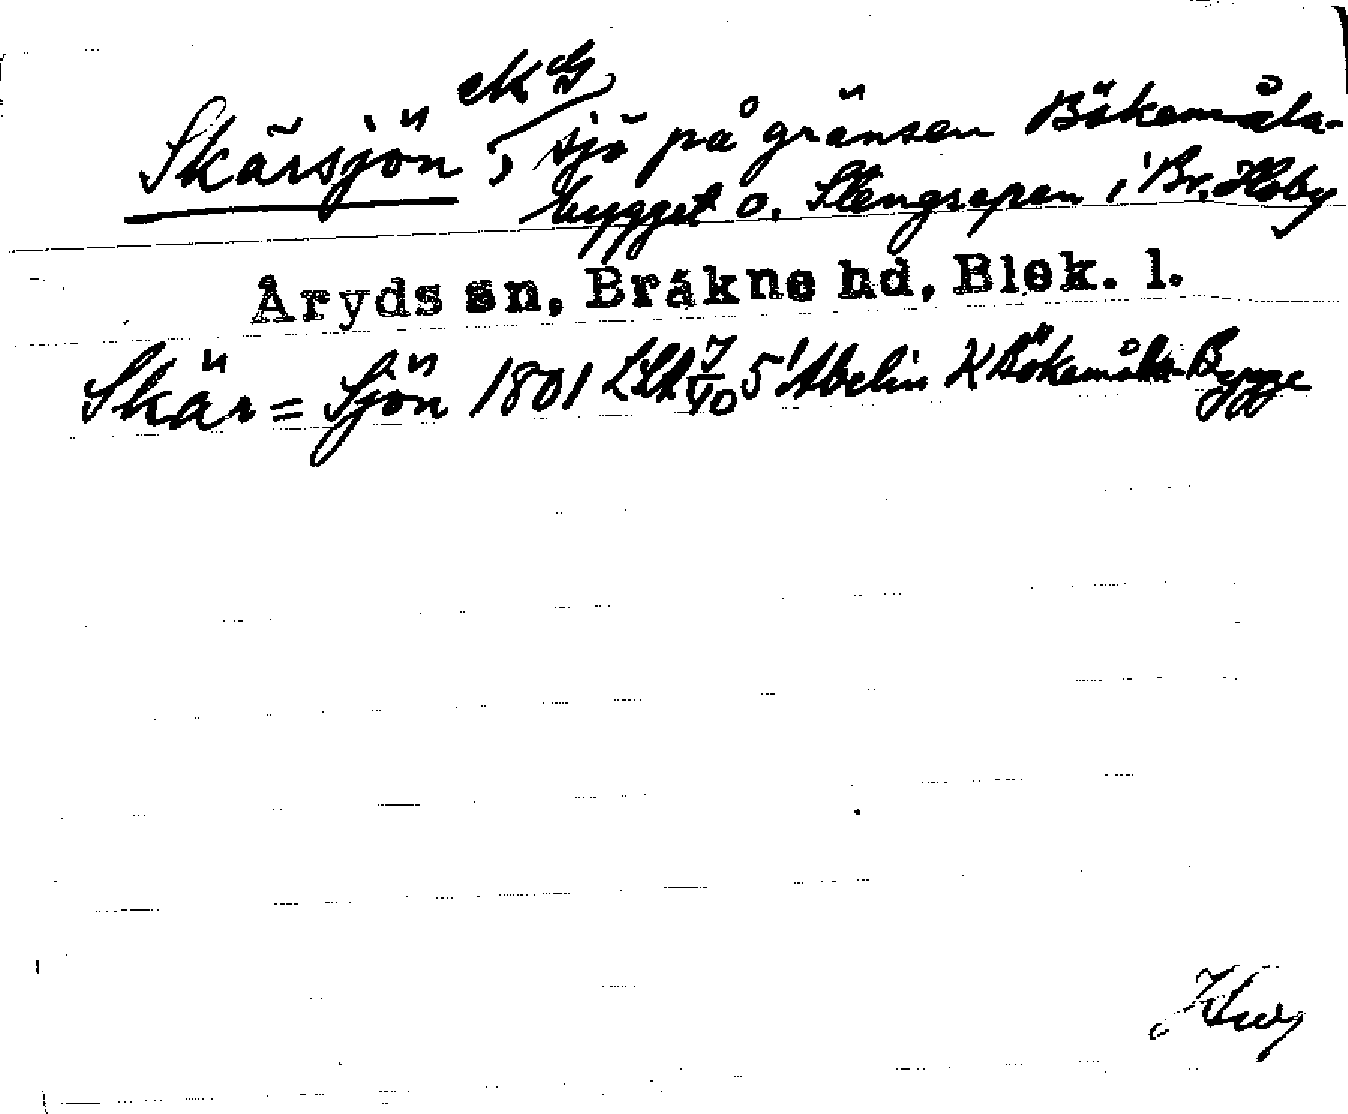 Skärsjön, sjö på gränsen Bökemåla-
bygget o. Stengrepen i Br. Hoby
Åryds sn, Bräkne hd, Blek. l.
Skär = Sjön 1801 LSA 7/10 5 Abelin K Bökemåla Bygge